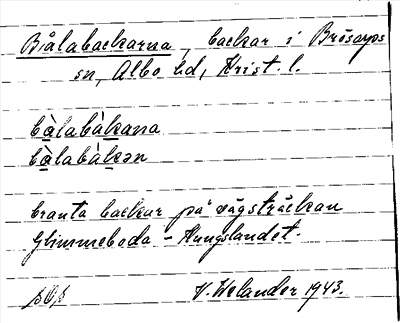 Bålabackarna, backar i Brösarps
sn, Albo hd, Krist. l.
bàlabàkana
bàlabàkən
branta backar på vägsträckan
Glimmeboda - Hungslandet.
V. Welander 1943.